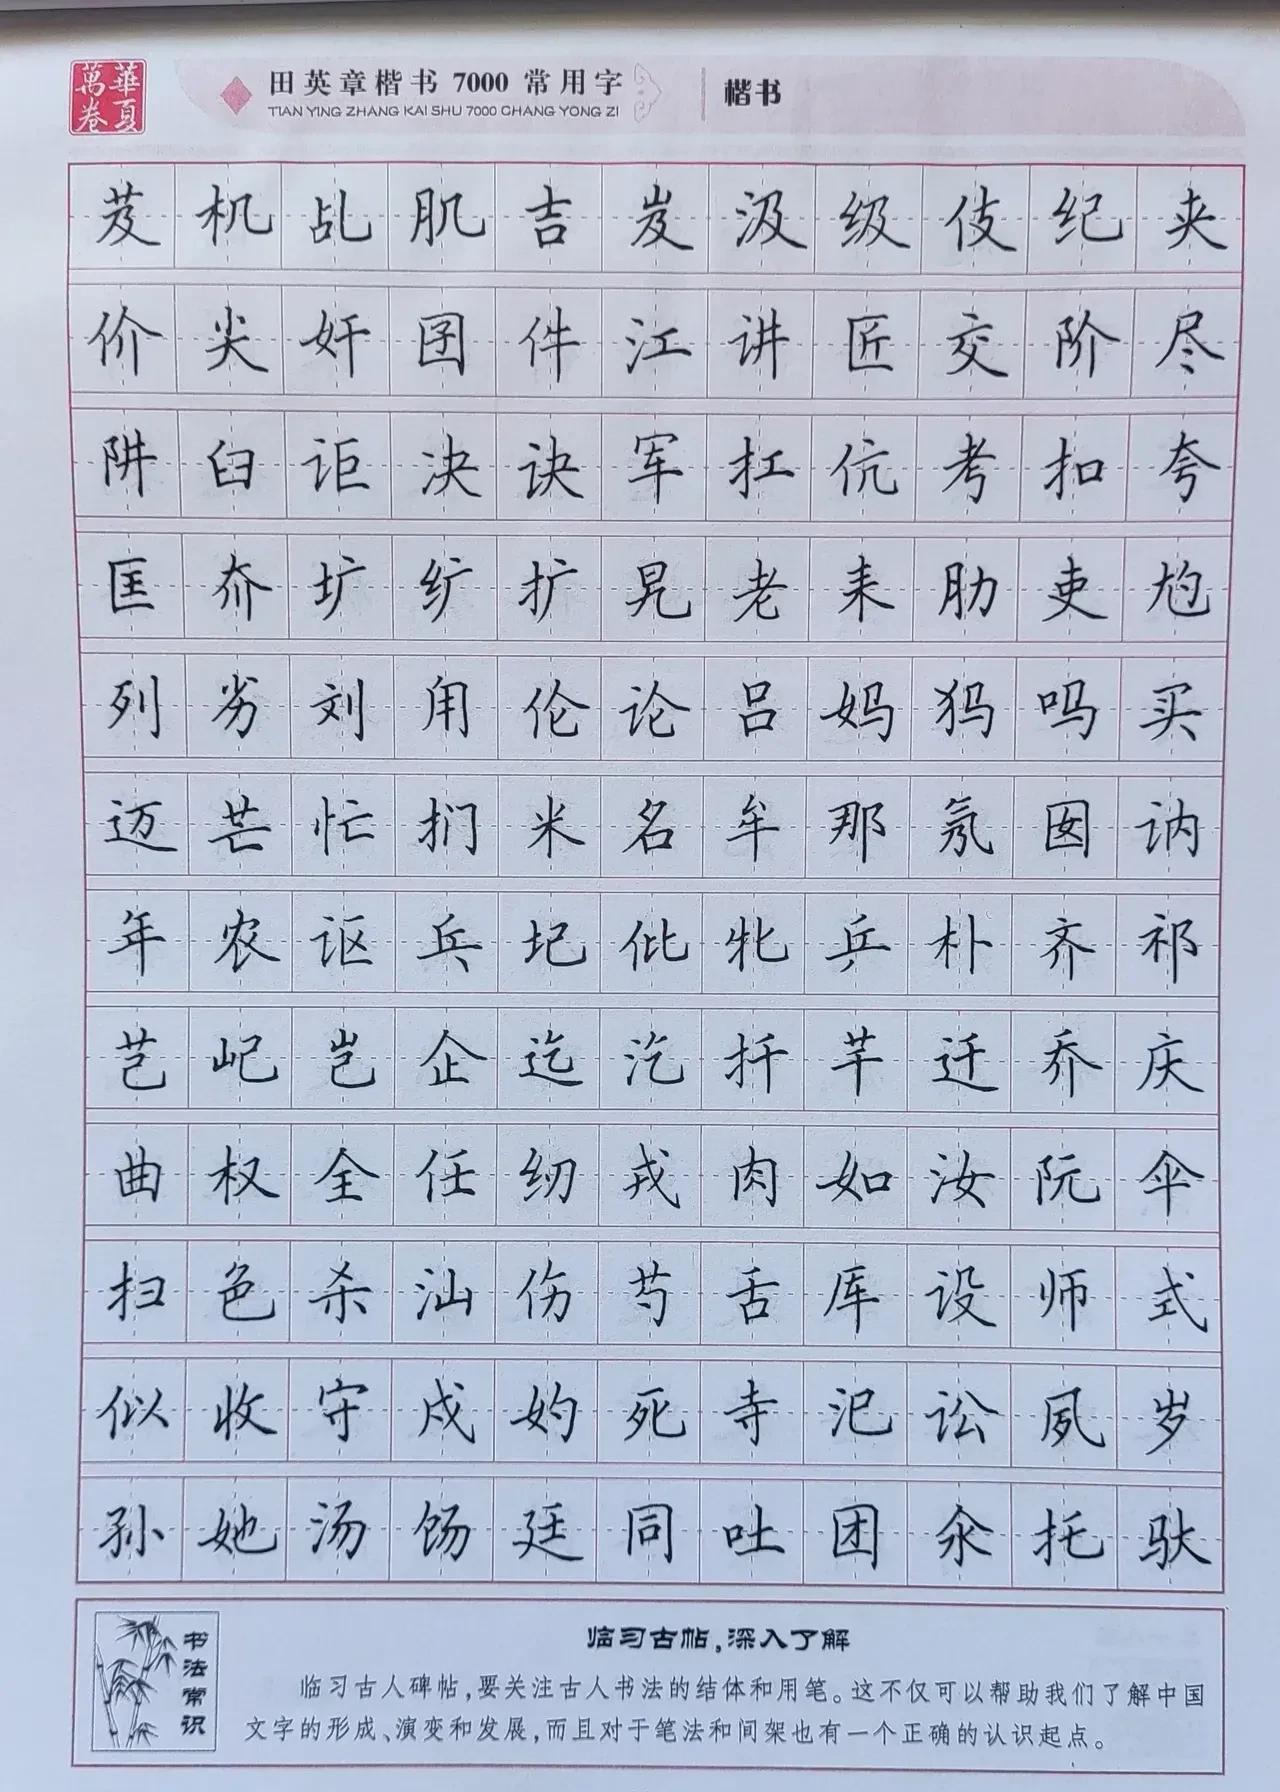 華夏萬卷
田英章楷书 7000 常用字
TIAN YING ZHANG KAI SHU 7000 CHANG YONG ZI
楷书
芨 机 乩 肌 吉 岌 汲 级 伎 纪 夹
价 尖 奸 囝 件 江 讲 匠 交 阶 尽
阱 臼 讵 决 诀 军 扛 伉 考 扣 夸
匡 夼 圹 纩 扩 旯 老 耒 肋 吏 尥
列 劣 刘 甪 伦 论 吕 妈 犸 吗 买
迈 芒 忙 扪 米 名 牟 那 氖 囡 讷
年 农 讴 乓 圮 仳 牝 乒 朴 齐 祁
芑 屺 岂 企 迄 汔 扦 芊 迁 乔 庆
曲 权 全 任 纫 戎 肉 如 汝 阮 伞
扫 色 杀 汕 伤 芍 舌 厍 设 师 式
似 收 守 戍 妁 死 寺 汜 讼 夙 岁
孙 她 汤 饧 廷 同 吐 团 氽 托 驮
书法常识
临习古帖,深入了解
临习古人碑帖,要关注古人书法的结体和用笔。这不仅可以帮助我们了解中国
文字的形成、演变和发展,而且对于笔法和间架也有一个正确的认识起点。